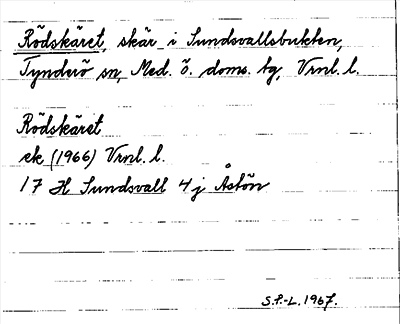 Rödskäret, skär i Sundsvallsbukten,
Tynderö sn, Med. ö. doms. tg, Vrnl. l.
Rödskäret
ek (1966) Vrnl. l.
17 H Sundsvall 4 j Åstön
S.F.-L. 1967.